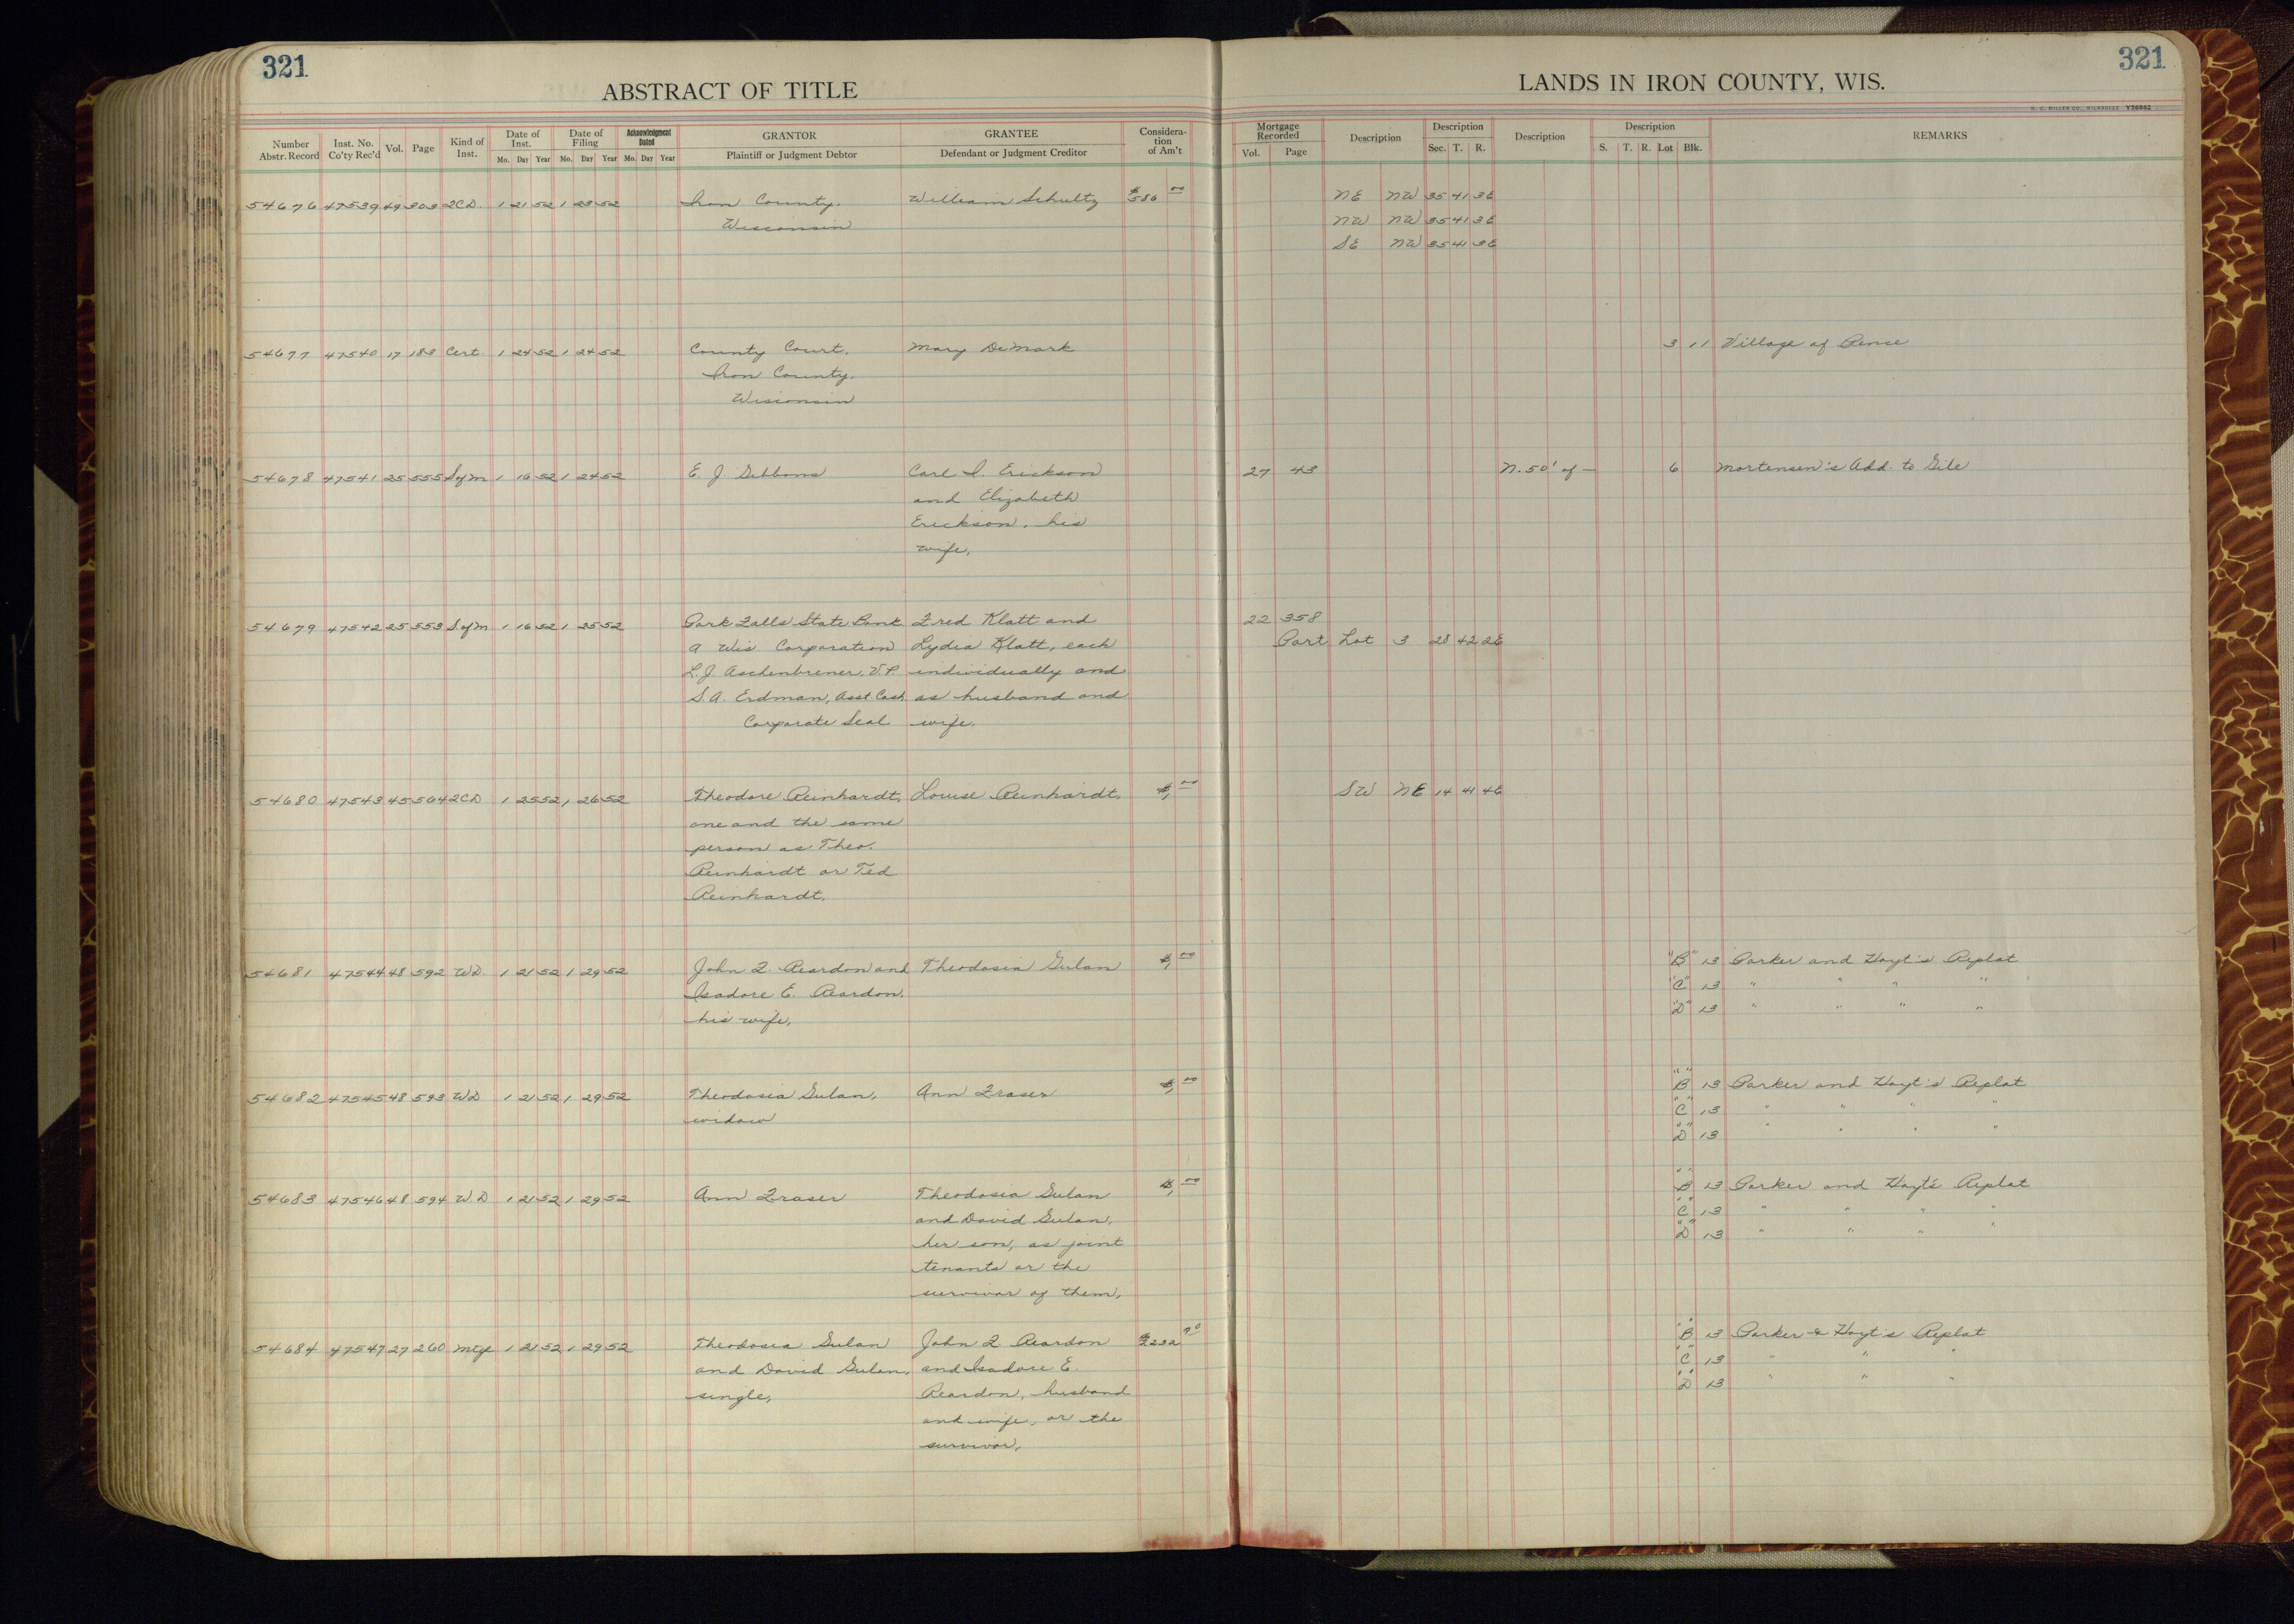 321
321
ABSTRACT OF TITLE
LANDS IN IRON COUNTY, WIS.
H. C. MILLER CO., MILWAUKEE Y36862
Number Abstr. Record
Inst. No. Co'ty Rec'd
Vol.
Page
Kind of Inst.
Date of Inst. Mo. Day Year
Date of Filing Mo. Day Year
Acknowledgment Dated Mo. Day Year
GRANTOR Plaintiff or Judgment Debtor
GRANTEE Defendant or Judgment Creditor
Considera-tion of Am't
Mortgage Recorded Vol. Page
Description
Description Sec. T. R.
Description
Description S. T. R. Lot Blk.
REMARKS
54676 47539 49 303 2CD. 1 21 52 1 23 52 Iron County, William Schultz $586 00 NE NW 35 41 3E
Wisconsin NW NW 35 41 3E
SE NW 35 41 3E
54677 47540 17 183 Cert. 1 24 52 1 24 52 County Court, Mary DeMark 3 11 Village of Pence
Iron County,
Wisconsin
54678 47541 25 555 Sofm 1 16 52 1 24 52 E. J. Gibbons Carl I. Erickson 27 43 N. 50' of — 6 Mortensen's Add. to Gile
and Elizabeth
Erickson, his
wife,
54679 47542 25 553 Sofm 1 16 52 1 25 52 Park Falls State Bank Fred Klatt and 22 358
a Wis. Corporation Lydia Klatt, each Part Lot 3 28 42 2E
L.J. Aschenbrener, V.P. individually and
S.A. Erdman, Asst Cash as husband and
Corporate Seal wife.
54680 47543 45 564 2CD 1 25 52 1 26 52 Theodore Reinhardt, Louise Reinhardt, $1, 00 SW NE 14 41 4E
one and the same
person as Theo.
Reinhardt or Ted
Reinhardt,
54681 47544 48 592 WD. 1 21 52 1 29 52 John F. Reardon and Theodosia Gulan $1, 00 "B" 13 Parker and Hoyt's Replat
Isadore E. Reardon, "C" 13 " " " "
his wife, "D" 13 " " " "
54682 47545 48 593 WD 1 21 52 1 29 52 Theodosia Gulan, Ann Fraser $1, 00 "B" 13 Parker and Hoyt's Replat
widow "C" 13 " " " "
"D" 13 " " " "
54683 47546 48 594 W.D 1 21 52 1 29 52 Ann Fraser Theodosia Gulan $1, 00 "B" 13 Parker and Hoyt's Replat
and David Gulan, "C" 13 " " " "
her son, as joint "D" 13 " " " "
tenants or the
survivor of them,
54684 47547 27 260 Mtg 1 21 52 1 29 52 Theodosia Gulan John F. Reardon $2232 90 "B" 13 Parker & Hoyt's Replat
and David Gulan, and Isadore E. "C" 13 " " "
single, Reardon, husband "D" 13 " " "
and wife, or the
survivor,